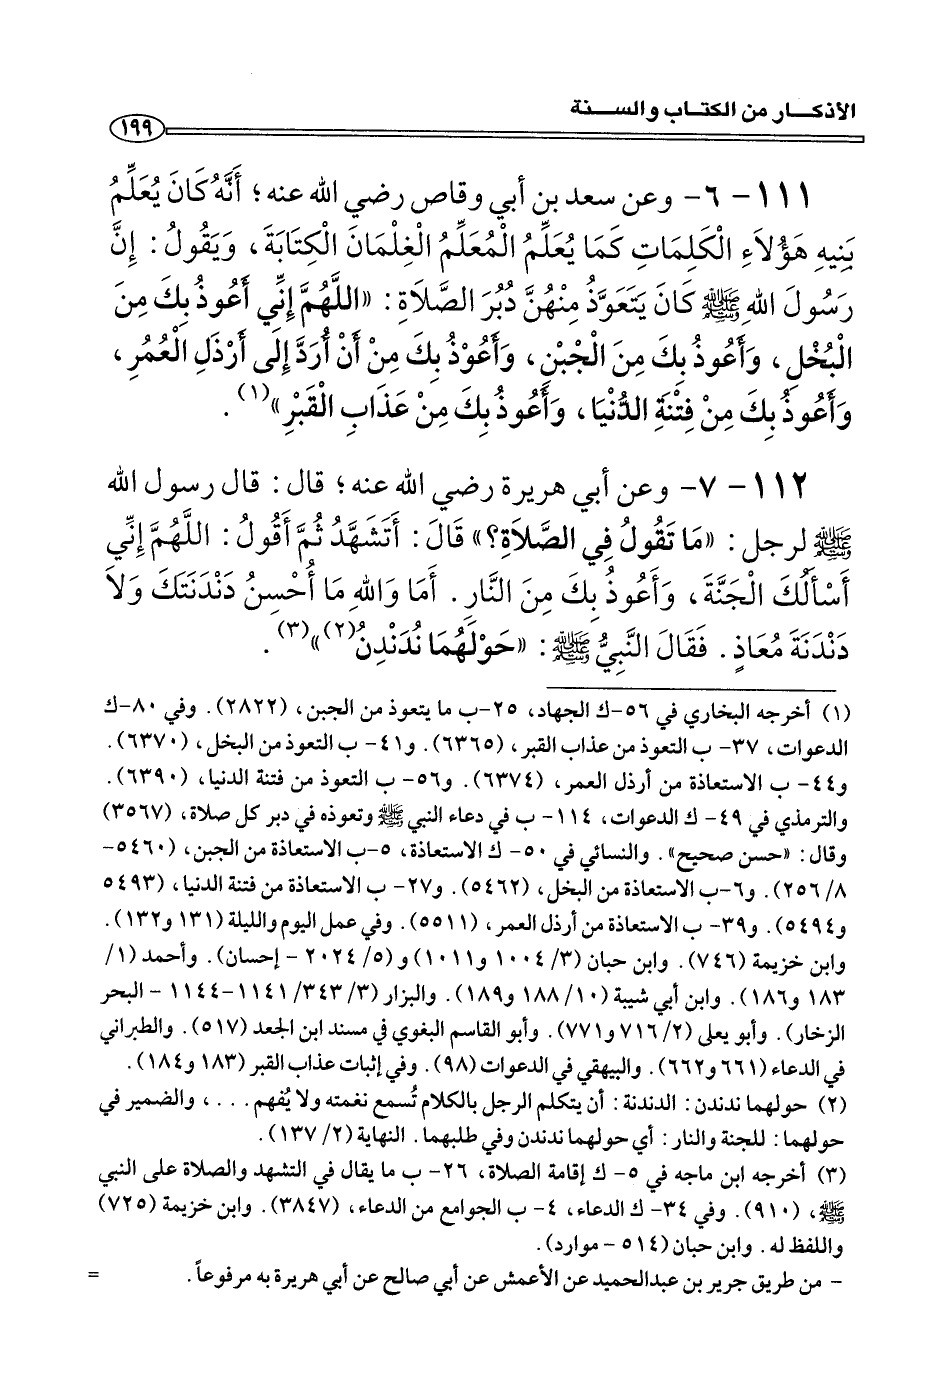 الأذكـــار من الكتـاب والســـنة
١٩٩
١١١ - ٦- وعن سعد بن أبي وقاص رضي الله عنه؛ أَنَّهُ كَانَ يُعَلِّمُ
بَنِيهِ هَؤُلَاءِ الْكَلِمَاتِ كَمَا يُعَلِّمُ الْمُعَلِّمُ الْغِلْمَانَ الْكِتَابَةَ، وَيَقُولُ: إِنَّ
رَسُولَ اللهِ ﷺ كَانَ يَتَعَوَّذُ مِنْهُنَّ دُبُرَ الصَّلَاةِ: «اللَّهُمَّ إِنِّي أَعُوذُ بِكَ مِنَ
الْبُخْلِ، وَأَعُوذُ بِكَ مِنَ الْجُبْنِ، وَأَعُوْذُ بِكَ مِنْ أَنْ أُرَدَّ إِلَى أَرْذَلِ الْعُمُرِ،
وَأَعُوذُ بِكَ مِنْ فِتْنَةِ الدُّنْيَا، وَأَعُوذُ بِكَ مِنْ عَذَابِ الْقَبْرِ»(١).
١١٢ - ٧- وعن أبي هريرة رضي الله عنه؛ قال: قال رسول الله
ﷺ لرجل: «مَا تَقُولُ فِي الصَّلَاةِ؟» قَالَ: أَتَشَهَّدُ ثُمَّ أَقُولُ: اللَّهُمَّ إِنِّي
أَسْأَلُكَ الْجَنَّةَ، وَأَعُوذُ بِكَ مِنَ النَّارِ. أَمَا وَاللهِ مَا أُحْسِنُ دَنْدَنَتَكَ وَلَا
دَنْدَنَةَ مُعَاذٍ. فَقَالَ النَّبِيُّ ﷺ: «حَوْلَهُمَا نُدَنْدِنُ(٢)»(٣).
(١) أخرجه البخاري في ٥٦-ك الجهاد، ٢٥-ب ما يتعوذ من الجبن، (٢٨٢٢). وفي ٨٠-ك
الدعوات، ٣٧- ب التعوذ من عذاب القبر، (٦٣٦٥). و٤١- ب التعوذ من البخل، (٦٣٧٠).
و٤٤- ب الاستعاذة من أرذل العمر، (٦٣٧٤). و٥٦- ب التعوذ من فتنة الدنيا، (٦٣٩٠).
والترمذي في ٤٩- ك الدعوات، ١١٤- ب في دعاء النبي ﷺ وتعوذه في دبر كل صلاة، (٣٥٦٧)
وقال: «حسن صحيح». والنسائي في ٥٠- ك الاستعاذة، ٥-ب الاستعاذة من الجبن، (٥٤٦٠-
٨/ ٢٥٦). و٦-ب الاستعاذة من البخل، (٥٤٦٢). و٢٧- ب الاستعاذة من فتنة الدنيا، (٥٤٩٣
و٥٤٩٤). و٣٩- ب الاستعاذة من أرذل العمر، (٥٥١١). وفي عمل اليوم والليلة (١٣١ و١٣٢).
وابن خزيمة (٧٤٦). وابن حبان (٣/ ١٠٠٤ و١٠١١) و(٥/ ٢٠٢٤ - إحسان). وأحمد (١/
١٨٣ و١٨٦). وابن أبي شيبة (١٠/ ١٨٨ و١٨٩). والبزار (٣/ ٣٤٣/ ١١٤١-١١٤٤ - البحر
الزخار). وأبو يعلى (٢/ ٧١٦ و٧٧١). وأبو القاسم البغوي في مسند ابن الجعد (٥١٧). والطبراني
في الدعاء (٦٦١ و٦٦٢). والبيهقي في الدعوات (٩٨). وفي إثبات عذاب القبر (١٨٣ و١٨٤).
(٢) حولهما ندندن: الدندنة: أن يتكلم الرجل بالكلام تُسمع نغمته ولا يُفهم . . . ، والضمير في
حولهما: للجنة والنار: أي حولهما ندندن وفي طلبهما. النهاية (٢/ ١٣٧).
(٣) أخرجه ابن ماجه في ٥- ك إقامة الصلاة، ٢٦- ب ما يقال في التشهد والصلاة على النبي
ﷺ، (٩١٠). وفي ٣٤- ك الدعاء، ٤- ب الجوامع من الدعاء، (٣٨٤٧). وابن خزيمة (٧٢٥)
واللفظ له. وابن حبان (٥١٤ - موارد).
- من طريق جرير بن عبدالحميد عن الأعمش عن أبي صالح عن أبي هريرة به مرفوعاً. =